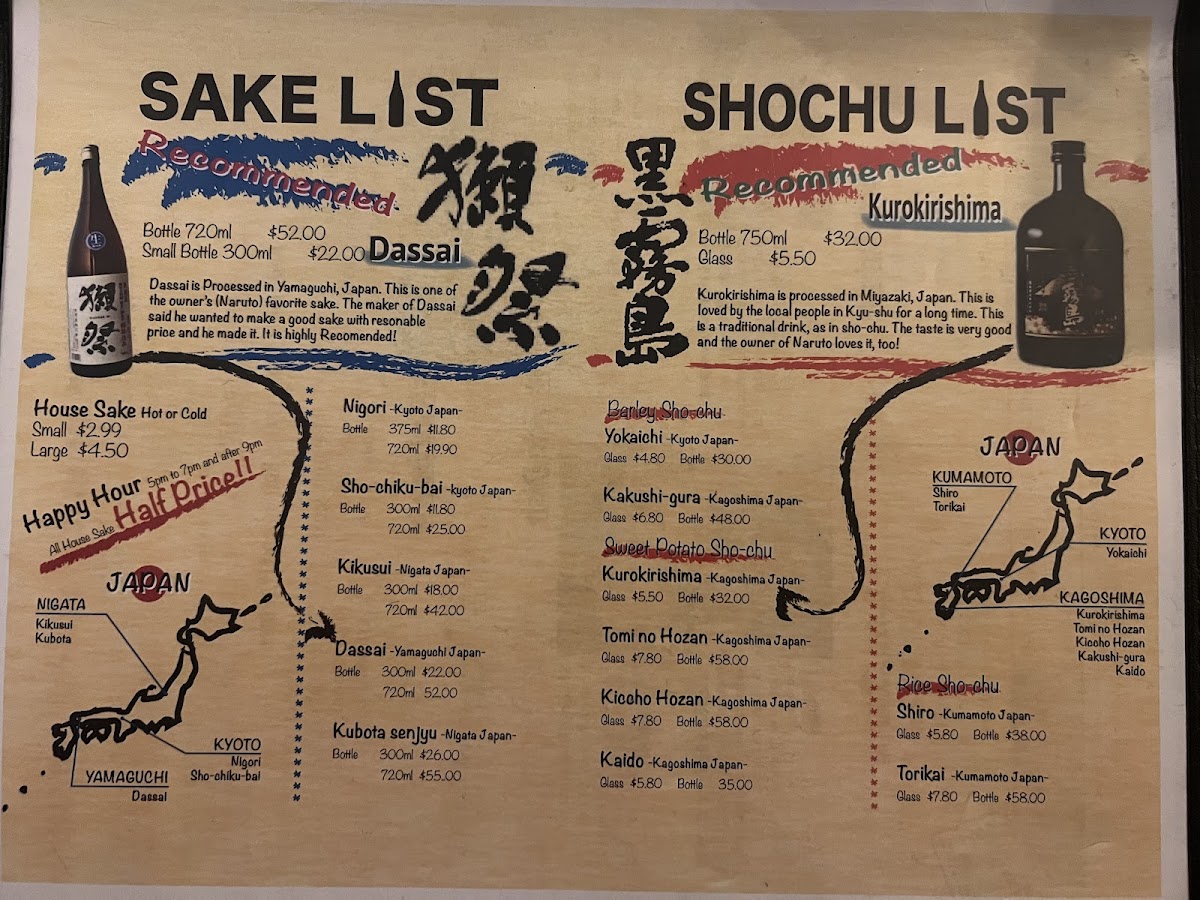 SAKE LIST
Recommended
獺祭
Bottle 720ml $52.00
Small Bottle 300ml $22.00
Dassai
Dassai is Processed in Yamaguchi, Japan. This is one of
the owner's (Naruto) favorite sake. The maker of Dassai
said he wanted to make a good sake with resonable
price and he made it. It is highly Recomended!
獺祭
House Sake Hot or Cold
Small $2.99
Large $4.50
Happy Hour 5pm to 7pm and after 9pm
All House Sake Half Price!!
JAPAN
NIGATA
Kikusui
Kubota
KYOTO
Nigori
Sho-chiku-bai
YAMAGUCHI
Dassai
Nigori -Kyoto Japan-
Bottle 375ml $11.80
720ml $19.90
Sho-chiku-bai -kyoto Japan-
Bottle 300ml $11.80
720ml $25.00
Kikusui -Nigata Japan-
Bottle 300ml $18.00
720ml $42.00
Dassai -Yamaguchi Japan-
Bottle 300ml $22.00
720ml 52.00
Kubota senjyu -Nigata Japan-
Bottle 300ml $26.00
720ml $55.00
SHOCHU LIST
黒霧島
Recommended
Kurokirishima
Bottle 750ml $32.00
Glass $5.50
Kurokirishima is processed in Miyazaki, Japan. This is
loved by the local people in Kyu-shu for a long time. This
is a traditional drink, as in sho-chu. The taste is very good
and the owner of Naruto loves it, too!
Barley Sho-chu
Yokaichi -Kyoto Japan-
Glass $4.80 Bottle $30.00
Kakushi-gura -Kagoshima Japan-
Glass $6.80 Bottle $48.00
Sweet Potato Sho-chu
Kurokirishima -Kagoshima Japan-
Glass $5.50 Bottle $32.00
Tomi no Hozan -Kagoshima Japan-
Glass $7.80 Bottle $58.00
Kiccho Hozan -Kagoshima Japan-
Glass $7.80 Bottle $58.00
Kaido -Kagoshima Japan-
Glass $5.80 Bottle 35.00
JAPAN
KUMAMOTO
Shiro
Torikai
KYOTO
Yokaichi
KAGOSHIMA
Kurokirishima
Tomi no Hozan
Kiccho Hozan
Kakushi-gura
Kaido
Rice Sho-chu
Shiro -Kumamoto Japan-
Glass $5.80 Bottle $38.00
Torikai -Kumamoto Japan-
Glass $7.80 Bottle $58.00